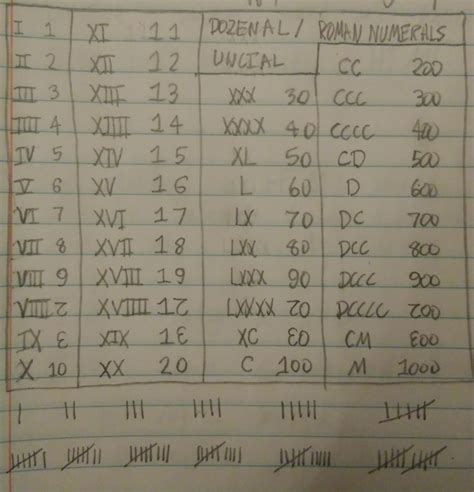 I 1 XI 11 DOZENAL/ ROMAN NUMERALS
II 2 XII 12 UNCIAL CC 200
III 3 XIII 13 XXX 30 CCC 300
IIII 4 XIIII 14 XXXX 40 CCCC 400
IV 5 XIV 15 XL 50 CD 500
V 6 XV 16 L 60 D 600
VI 7 XVI 17 LX 70 DC 700
VII 8 XVII 18 LXX 80 DCC 800
VIII 9 XVIII 19 LXXX 90 DCCC 900
VIIII ↊ XVIIII 1↊ LXXXX ↊0 DCCCC ↊00
IX ↋ XIX 1↋ XC ↋0 CM ↋00
X 10 XX 20 C 100 M 1000